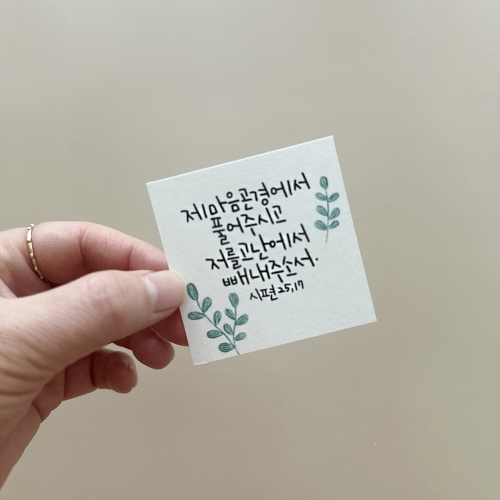 제 마음 곤경에서
풀어주시고
저를 고난에서
빼내주소서.
시편 25,17